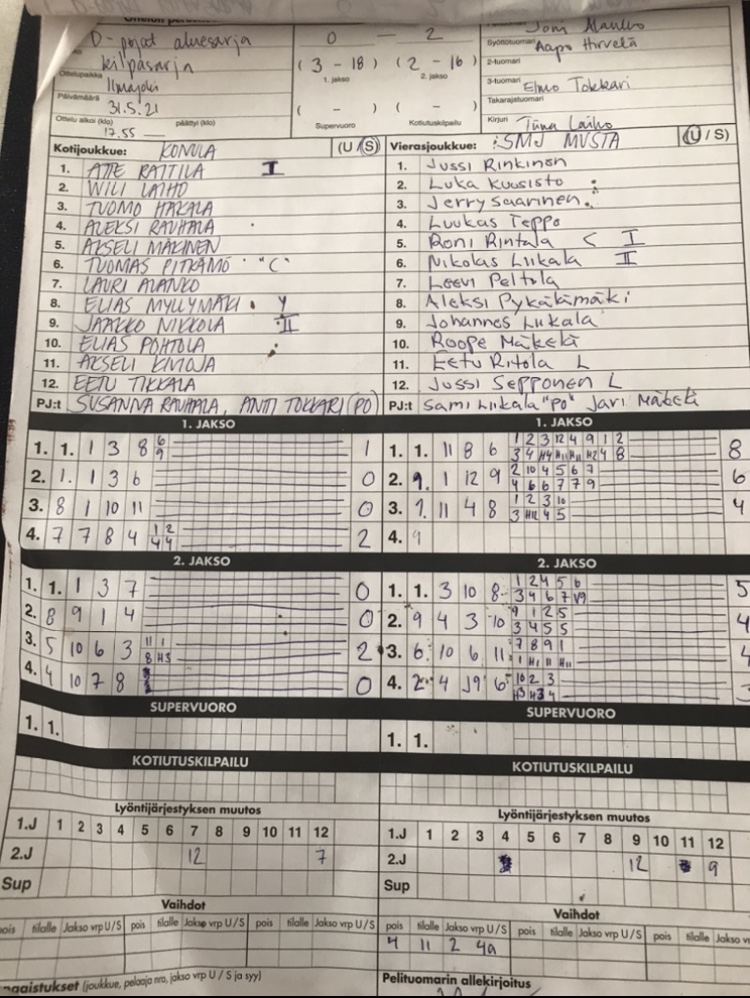 D-pojat aluesarja
kilpasarja
Ottelupaikka
Ilmajoki
Päivämäärä
31.5.21
Ottelu alkoi (klo) päättyi (klo)
17.55
0 — 2
( 3 - 18 ) ( 2 - 16 )
1. jakso 2. jakso
( - ) ( - )
Supervuoro Kotiutuskilpailu
Joni
Syöttötuomari
Aapo Hirvelä
2-tuomari
3-tuomari
Elmo Tokkari
Takarajatuomari
Kirjuri
Tiina Laiho
Kotijoukkue: KONULA (U / S)
1. ATTE RATTILA I
2. WILI LAIHO
3. TUOMO HAKALA
4. ALEKSI RAUHALA
5. AKSELI MÄKINEN
6. TUOMAS PITKÄMÖ "C"
7. LAURI ALANKO
8. ELIAS MYLLYMÄKI Y
9. JAAKKO NIKKOLA II
10. ELIAS POHTOLA
11. AKSELI KIVIOJA
12. EETU TIKKALA
PJ:t SUSANNA RAUHALA, ANTI TOKKARI (PO)
Vierasjoukkue: SMJ MUSTA (U / S)
1. Jussi Rinkinen
2. Luka Kuusisto
3. Jerry Saarinen
4. Luukas Teppo
5. Roni Rintala C I
6. Nikolas Liikala II
7. Leevi Peltola
8. Aleksi Pykälämäki
9. Johannes Liikala
10. Roope Mäkelä
11. Eetu Ritola L
12. Jussi Sepponen L
PJ:t Sami Liikala "PO" Jari Mäkelä
1. JAKSO
1. 1. 1 3 8 6 9 1
2. 1. 1 3 6 0
3. 8 1 10 11 0
4. 7 7 8 4 1 2 4 4 2
2. JAKSO
1. 1. 1 3 7 0
2. 8 9 1 4 0
3. 5 10 6 3 11 1 8 H3 2
4. 4 10 7 8 0
SUPERVUORO
1. 1.
KOTIUTUSKILPAILU
Lyöntijärjestyksen muutos
1.J 1 2 3 4 5 6 7 8 9 10 11 12
2.J 12 7
Sup
Vaihdot
pois tilalle Jakso vrp U/S pois tilalle Jakso vrp U/S pois tilalle Jakso vrp U/S
(joukkue, pelaaja nro, jakso vrp U / S ja syy)
1. JAKSO
1. 1. 11 8 6 1 2 3 12 4 9 1 2 8
2. 9. 1 12 9 2 10 4 5 6 7 6
4 6 6 7 7 9
3. 7. 11 4 8 1 2 3 10 4
3 H12 4 5
4. 9
2. JAKSO
1. 1. 3 10 8 1 2 4 5 6 5
3 4 6 7 V9
2. 9 4 3 10 9 1 2 5 4
3 4 5 5
3. 6 10 6 11 7 8 9 1 4
1 H1 11 H11
4. 2 4 J9 6 10 2 3
H3 H3 4
SUPERVUORO
1. 1.
KOTIUTUSKILPAILU
Lyöntijärjestyksen muutos
1.J 1 2 3 4 5 6 7 8 9 10 11 12
2.J 12 9
Sup
Vaihdot
pois tilalle Jakso vrp U/S pois tilalle Jakso vrp U/S pois tilalle Jakso
4 11 2 4a
Pelituomarin allekirjoitus